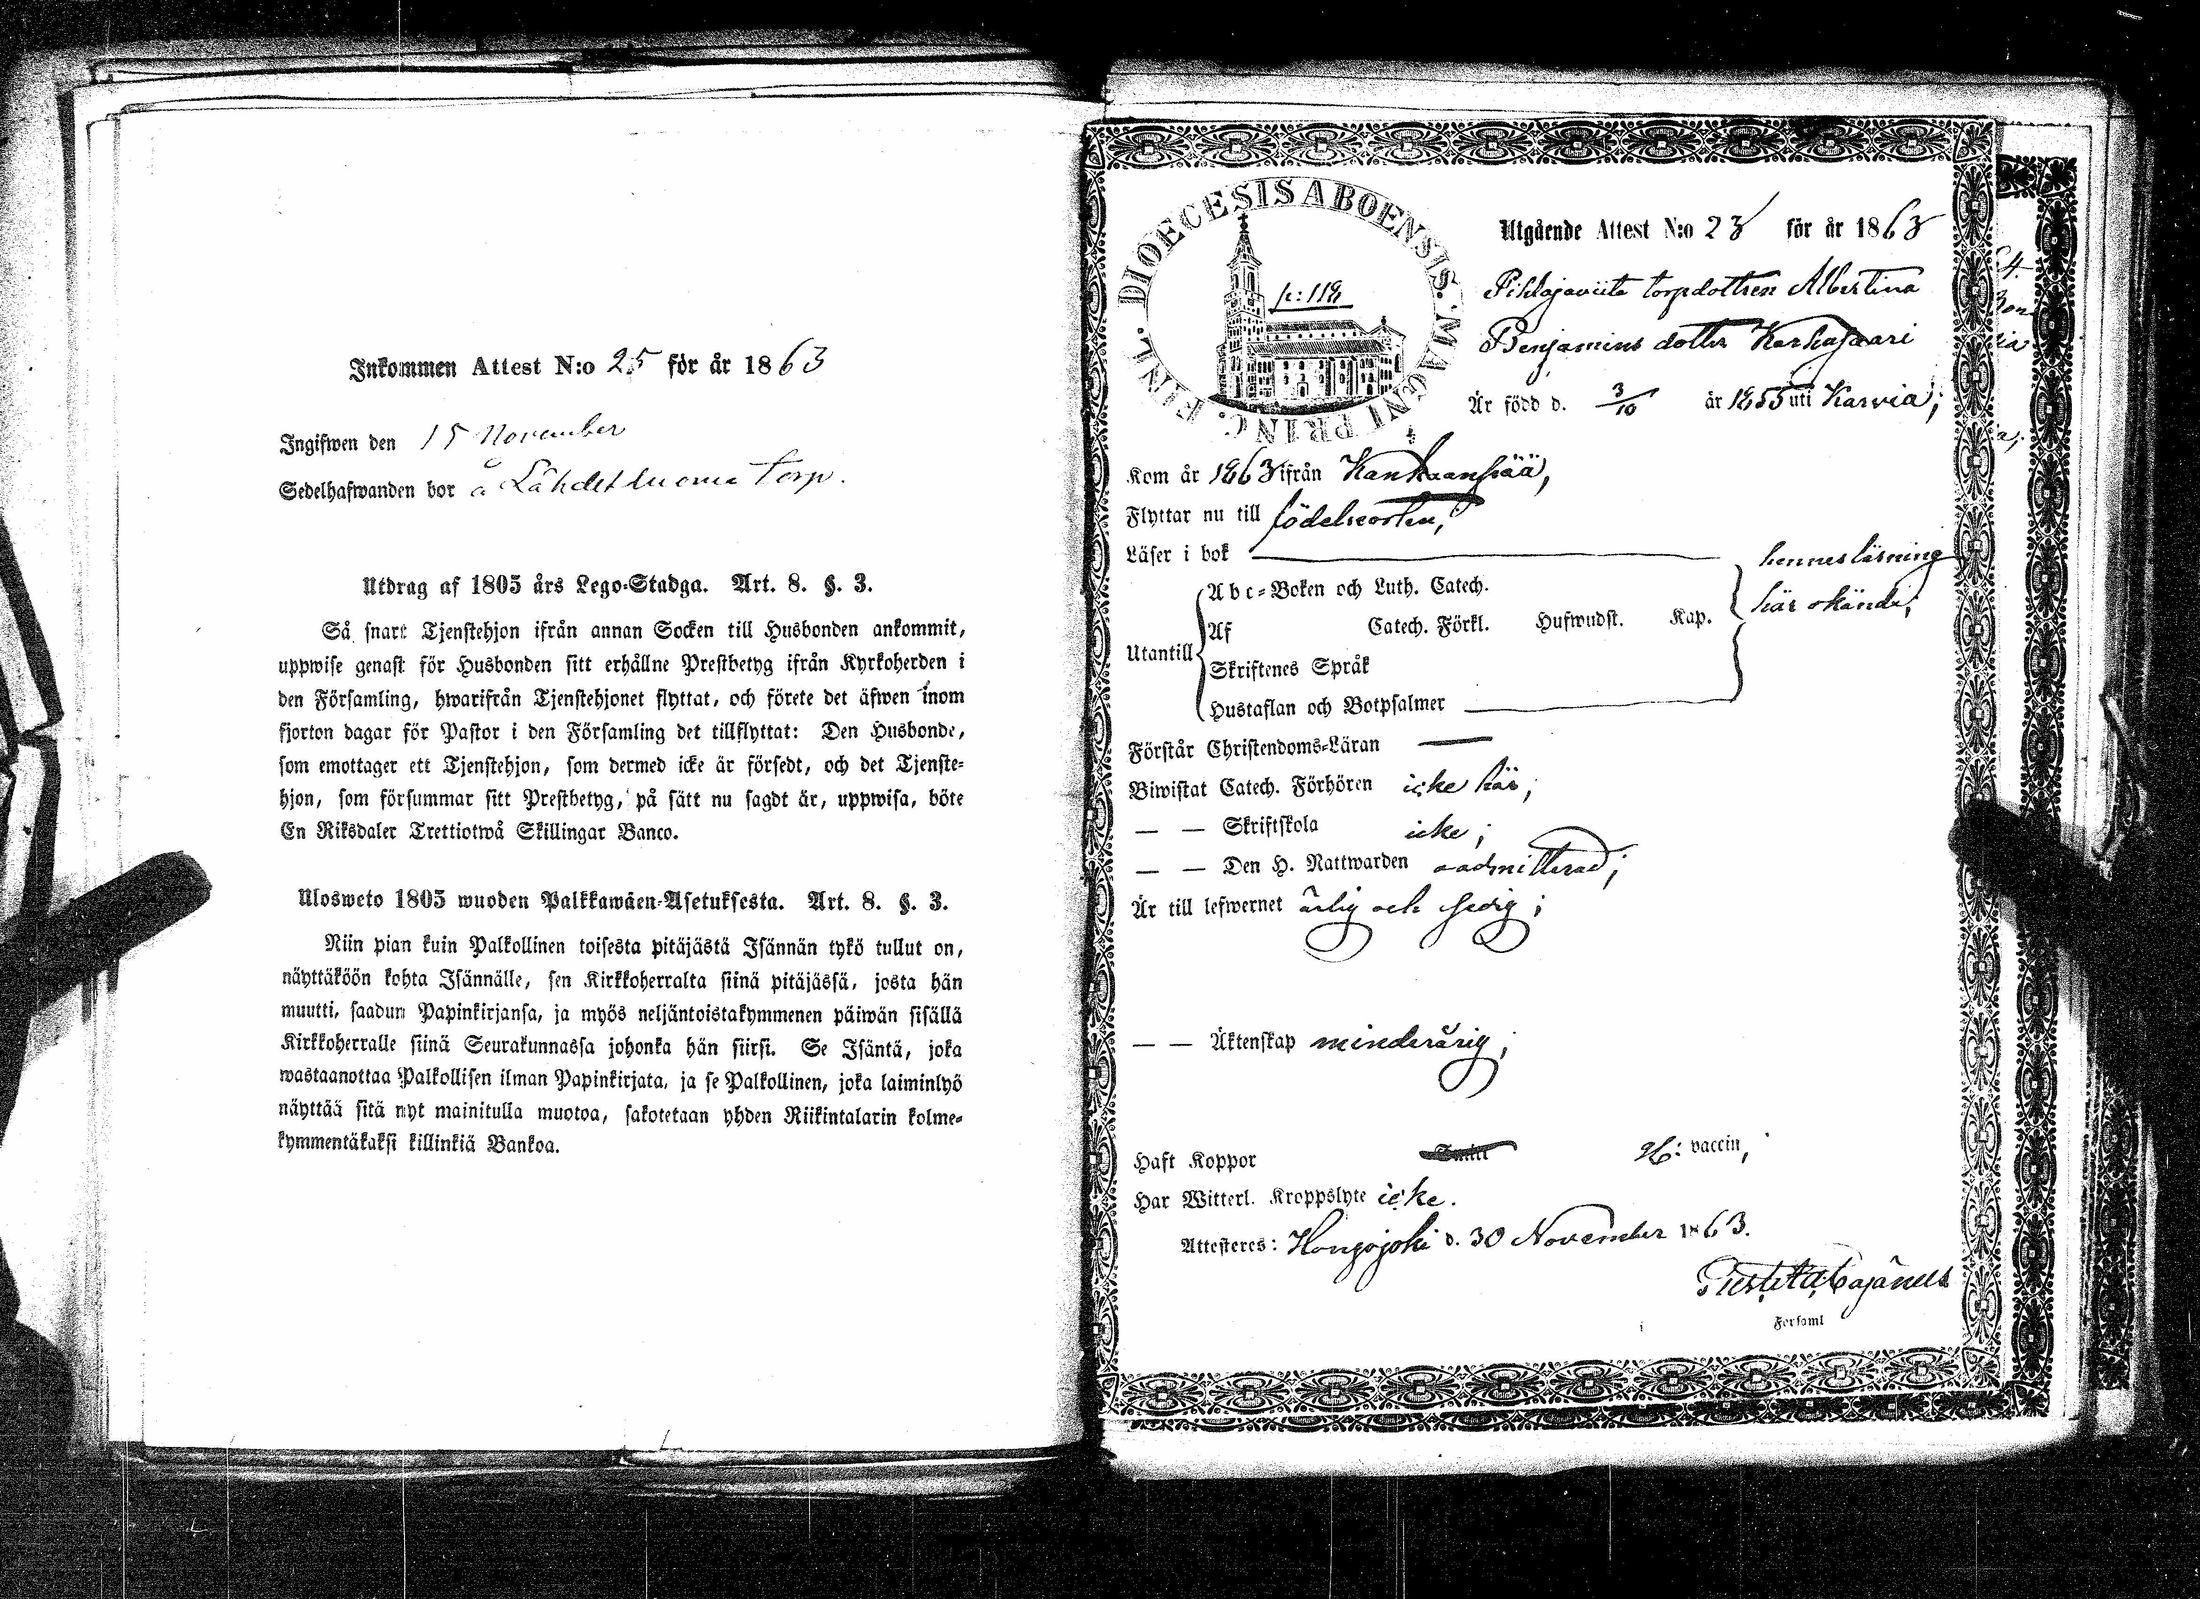 Inkommen Attest N:o 25 för år 1863
Ingifwen den 15 November
Sedelhafwanden bor å Lähdetluoma torp.
Utdrag af 1805 års Lego-Stadga. Art. 8. §. 3.
Så snart Tjenstehjon ifrån annan Socken till Husbonden ankommit,
uppwise genast för Husbonden sitt erhållne Prestbetyg ifrån Kyrkoherden i
den Församling, hwarifrån Tjenstehjonet flyttat, och förete det äfwen inom
fjorton dagar för Pastor i den Församling det tillflyttat: Den Husbonde,
som emottager ett Tjenstehjon, som dermed icke är försedt, och det Tjenste-
hjon, som försummar sitt Prestbetyg, på sätt nu sagdt är, uppwisa, böte
En Riksdaler Trettiotwå Skillingar Banco.
Ulosweto 1805 wuoden Palkkawäen-Asetuksesta. Art. 8. §. 3.
Niin pian kuin Palkollinen toisesta pitäjästä Isännän tykö tullut on,
näyttäköön kohta Isännälle, sen Kirkkoherralta siinä pitäjässä, josta hän
muutti, saadun Papinkirjansa, ja myös neljäntoistakymmenen päiwän sisällä
Kirkkoherralle siinä Seurakunnassa johonka hän siirsi. Se Isäntä, joka
wastaanottaa Palkollisen ilman Papinkirjata, ja se Palkollinen, joka laiminlyö
näyttää sitä nyt mainitulla muotoa, sakotetaan yhden Riikintalarin kolme-
kymmentäkaksi killinkiä Bankoa.
DIOECESIS ABOENSIS. MAGNI PRINC. FINL.
p: 118
Utgående Attest N:o 23 för år 1863
Pihlajaviita torpdottren Albertina
Benjamins dotter Karhusaari
Är född d. 3/10 år 1855 uti Karvia;
Kom år 1863 ifrån Kankaanpää,
Flyttar nu till födelseorten,
Läser i bok hennes läsning
Abc-Boken och Luth. Catech. här okänd;
Af Catech. Förkl. Hufwudst. Kap.
Utantill
Skriftenes Språk
Hustaflan och Botpsalmer
Förstår Christendoms-Läran
Biwistat Catech. Förhören icke här;
— — Skriftskola icke;
— — Den H. Nattwarden oadmitterad;
Är till lefwernet ärlig och sedig;
— — Äktenskap minderårig;
Haft Koppor vaccin,
Har Witterl. Kroppslyte icke.
Attesteres: Hongojoki d. 30 November 1863.
Cajanus
Forsaml